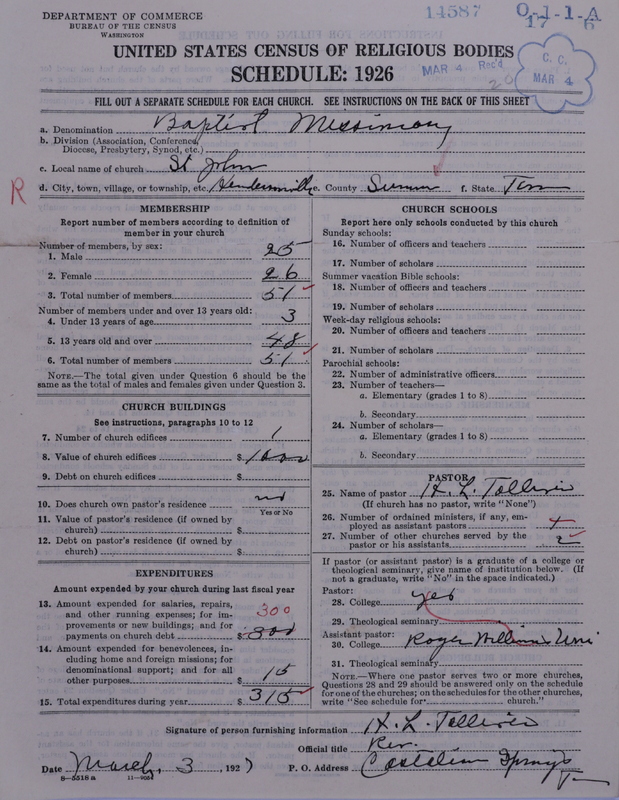 DEPARTMENT OF COMMERCE
BUREAU OF THE CENSUS
WASHINGTON
14587
O-1-1-A
17 6
UNITED STATES CENSUS OF RELIGIOUS BODIES
SCHEDULE: 1926
MAR 4 Rec'd
C. C.
MAR 4
FILL OUT A SEPARATE SCHEDULE FOR EACH CHURCH. SEE INSTRUCTIONS ON THE BACK OF THIS SHEET
a. Denomination Baptist Missionary
b. Division (Association, Conference, Diocese, Presbytery, Synod, etc.)
c. Local name of church St John
R
d. City, town, village, or township, etc. Hendersonville e. County Sumner f. State Tenn
MEMBERSHIP
Report number of members according to definition of member in your church
Number of members, by sex:
1. Male 25
2. Female 26
3. Total number of members 51
Number of members under and over 13 years old:
4. Under 13 years of age 3
5. 13 years old and over 48
6. Total number of members 51
NOTE.—The total given under Question 6 should be the same as the total of males and females given under Question 3.
CHURCH BUILDINGS
See instructions, paragraphs 10 to 12
7. Number of church edifices 1
8. Value of church edifices $ 1000
9. Debt on church edifices $
10. Does church own pastor's residence no
Yes or No
11. Value of pastor's residence (if owned by church) $
12. Debt on pastor's residence (if owned by church) $
EXPENDITURES
Amount expended by your church during last fiscal year
13. Amount expended for salaries, repairs, and other running expenses; for improvements or new buildings; and for payments on church debt $ 300 300
14. Amount expended for benevolences, including home and foreign missions; for denominational support; and for all other purposes $ 15
15. Total expenditures during year $ 315
CHURCH SCHOOLS
Report here only schools conducted by this church
Sunday schools:
16. Number of officers and teachers
17. Number of scholars
Summer vacation Bible schools:
18. Number of officers and teachers
19. Number of scholars
Week-day religious schools:
20. Number of officers and teachers
21. Number of scholars
Parochial schools:
22. Number of administrative officers
23. Number of teachers—
a. Elementary (grades 1 to 8)
b. Secondary
24. Number of scholars—
a. Elementary (grades 1 to 8)
b. Secondary
PASTOR
25. Name of pastor H. L. Tolliver
(If church has no pastor, write "None")
26. Number of ordained ministers, if any, employed as assistant pastors
27. Number of other churches served by the pastor or his assistants 2
If pastor (or assistant pastor) is a graduate of a college or theological seminary, give name of institution below. (If not a graduate, write "No" in the space indicated.)
Pastor:
28. College yes
29. Theological seminary
Assistant pastor:
30. College Roger William Uni
31. Theological seminary
NOTE.—Where one pastor serves two or more churches, Questions 28 and 29 should be answered only on the schedule for one of the churches; on the schedules for the other churches, write "See schedule for church."
Signature of person furnishing information H. L. Tolliver
Official title Rev.
Date March, 3, 1927
P. O. Address Castalian Springs
Tn
8-5518 a 11-9051